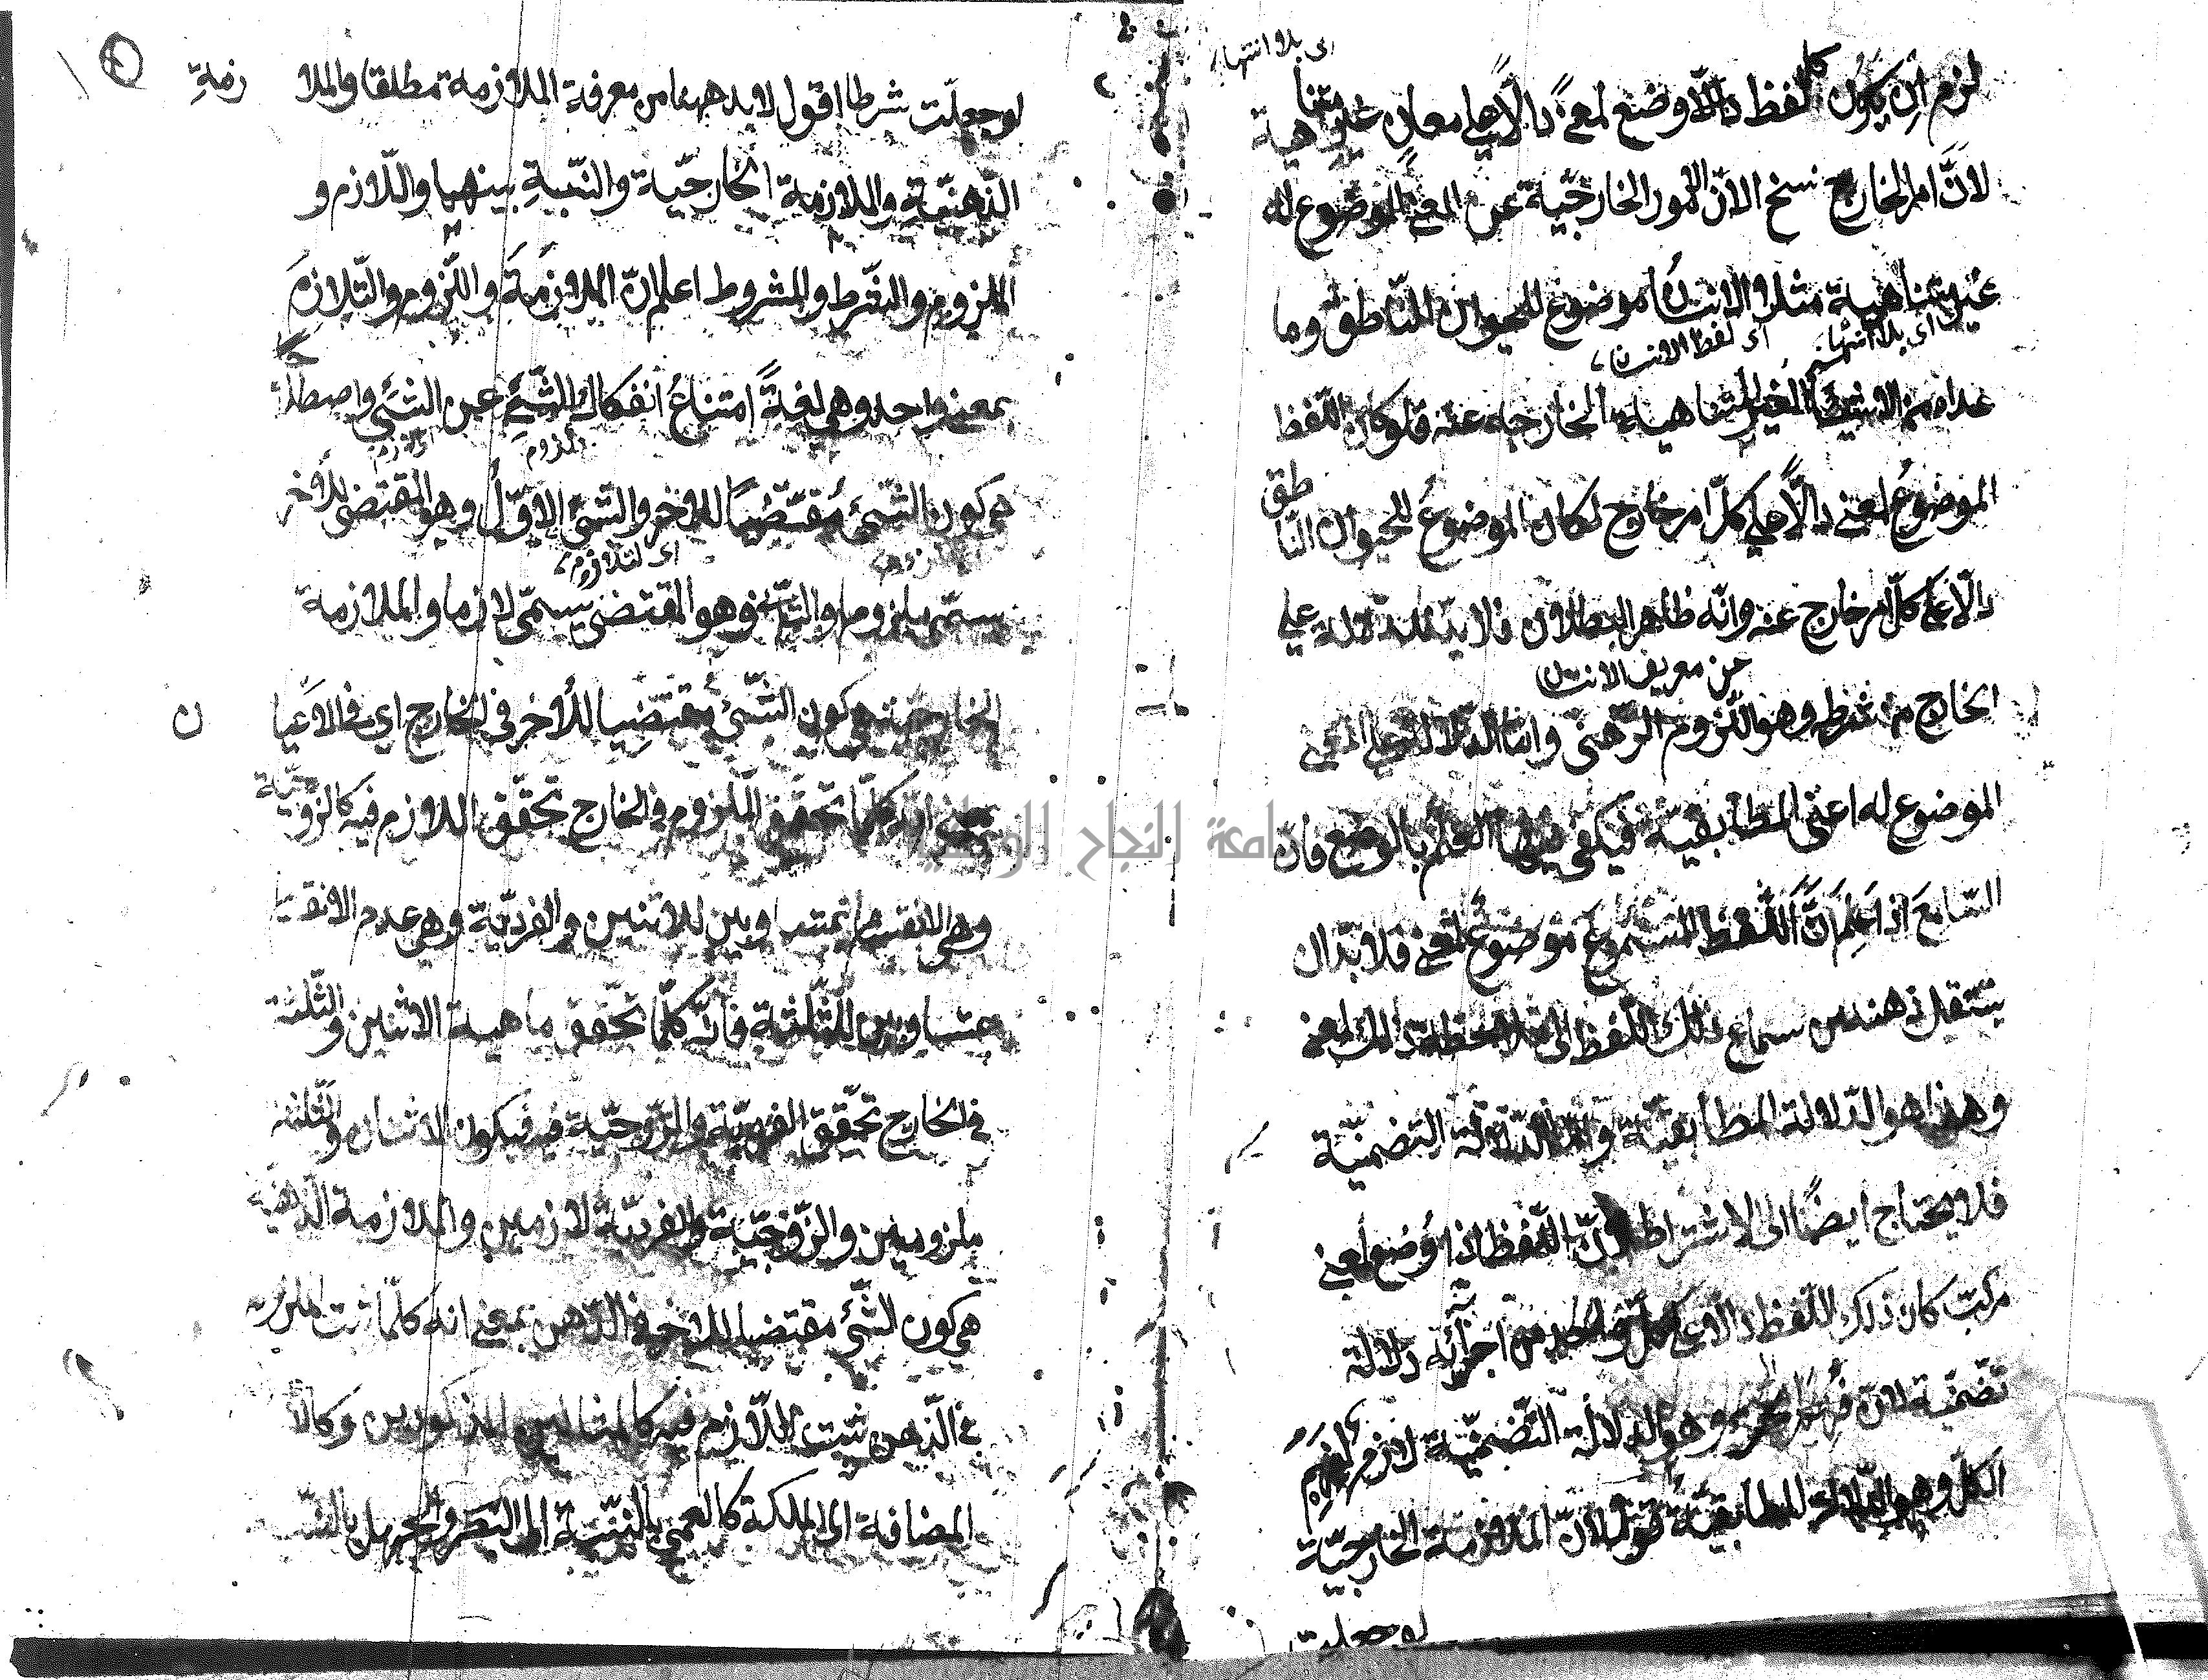 اى بلا انتهاء
لزم ان يكون كل لفظ دالّا وضع لمعنًى دالًا على معان غير متناهية
لانّ امر الخارج نسخ الانّ الامور الخارجيّة عن المعنى الموضوع له
غير متناهية مثلا الانسان موضوع للحيوان النّاطق وما
اى بلا انتهاء
اى لفظ الانسان
عداه من الاشياء الغير المتناهية الخارجية عنه فلو كان اللّفظ
الموضوع لمعنى دالًّا على كلّ امر خارج لكان الموضوع للحيوان الناطق
دالّا على كلّ امر خارج عنه وانّه ظاهر البطلان فلا بدّ للدلالة على
من تعريف الانسان
الخارج من شرط وهو اللّزوم الذّهنى وامّا الدّلالة على المعنى
الموضوع له اعنى المطابقيّة فيكفى فيها العلم بالوضع فانّ
السّامع اذا علم انّ اللّفظ المسموع موضوع لمعنى فلا بدّ ان
ينتقل ذهنه من سماع ذلك اللّفظ الى ملاحظة ذلك المعنى
وهذا هو الدّلالة المطابقيّة وامّا الدّلالة التضمنيّة
فلا يحتاج ايضًا الى الاشتراط لانّ اللّفظ اذا وُضع لمعنى
مركّب كان ذلك اللّفظ دالّا على كلّ واحد من اجزائه دلالة
تضمّنيّة لانّ فهم الجزء وهو الدلالة التّضمنّيّة لازم لفهم
الكلّ وهو الدّلالة المطابقيّة قوله لانّ الملازمة الخارجيّة
لو جعلت
لو جعلت شرطا اقول لا بد ههنا من معرفة الملازمة مطلقا والملازمة
الذّهنيّة والملازمة الخارجيّة والنّسبة بينهما واللّازم و
الملزوم والشّرط والمشروط اعلم انّ الملازمة واللّزوم والتّلازم
بمعنى واحد وهى لغةً امتناع انفكاك الشّيئ عن الشيئ واصطلاحا
الملزوم
هى كون الشّيئ مقتضيًا للاخر والشيئ الاوّل وهو المقتضى للاخر
يسمّى ملزوما والثّانى وهو المقتضى يسمّى لازما والملازمة
الخارجية هى كون الشّيئ مقتضيا للاخر فى الخارج اى فى الاعيان
كلّما تحقّق الملزوم فى الخارج تحقّق اللازم فيه كالزوجيّة
وهى الانقسام بمتساويين للاثنين والفرديّة وهى عدم الانقسام
بمتساويين للثّلثة فانّه كلّما تحقّق ماهية الاثنين والثّلثة
فى الخارج تحقّق الفرديّة والزّوجيّة فيه فيكون الاثنان والثّلثة
ملزومين والزّوجيّة والفرديّة لازمين والملازمة الذّهنيّة
هى كون الشّيئ مقتضيا للاخر فى الذّهن بمعنى انه كلّما ثبت الملزوم
فى الذّهن ثبت اللّازم فيه كالمثالين المذكورين وكالا
المضافة الى الملكة كالعمى بالنّسبة الى البصر والجهل بالنّسبة
جامعة النجاح الوطنية